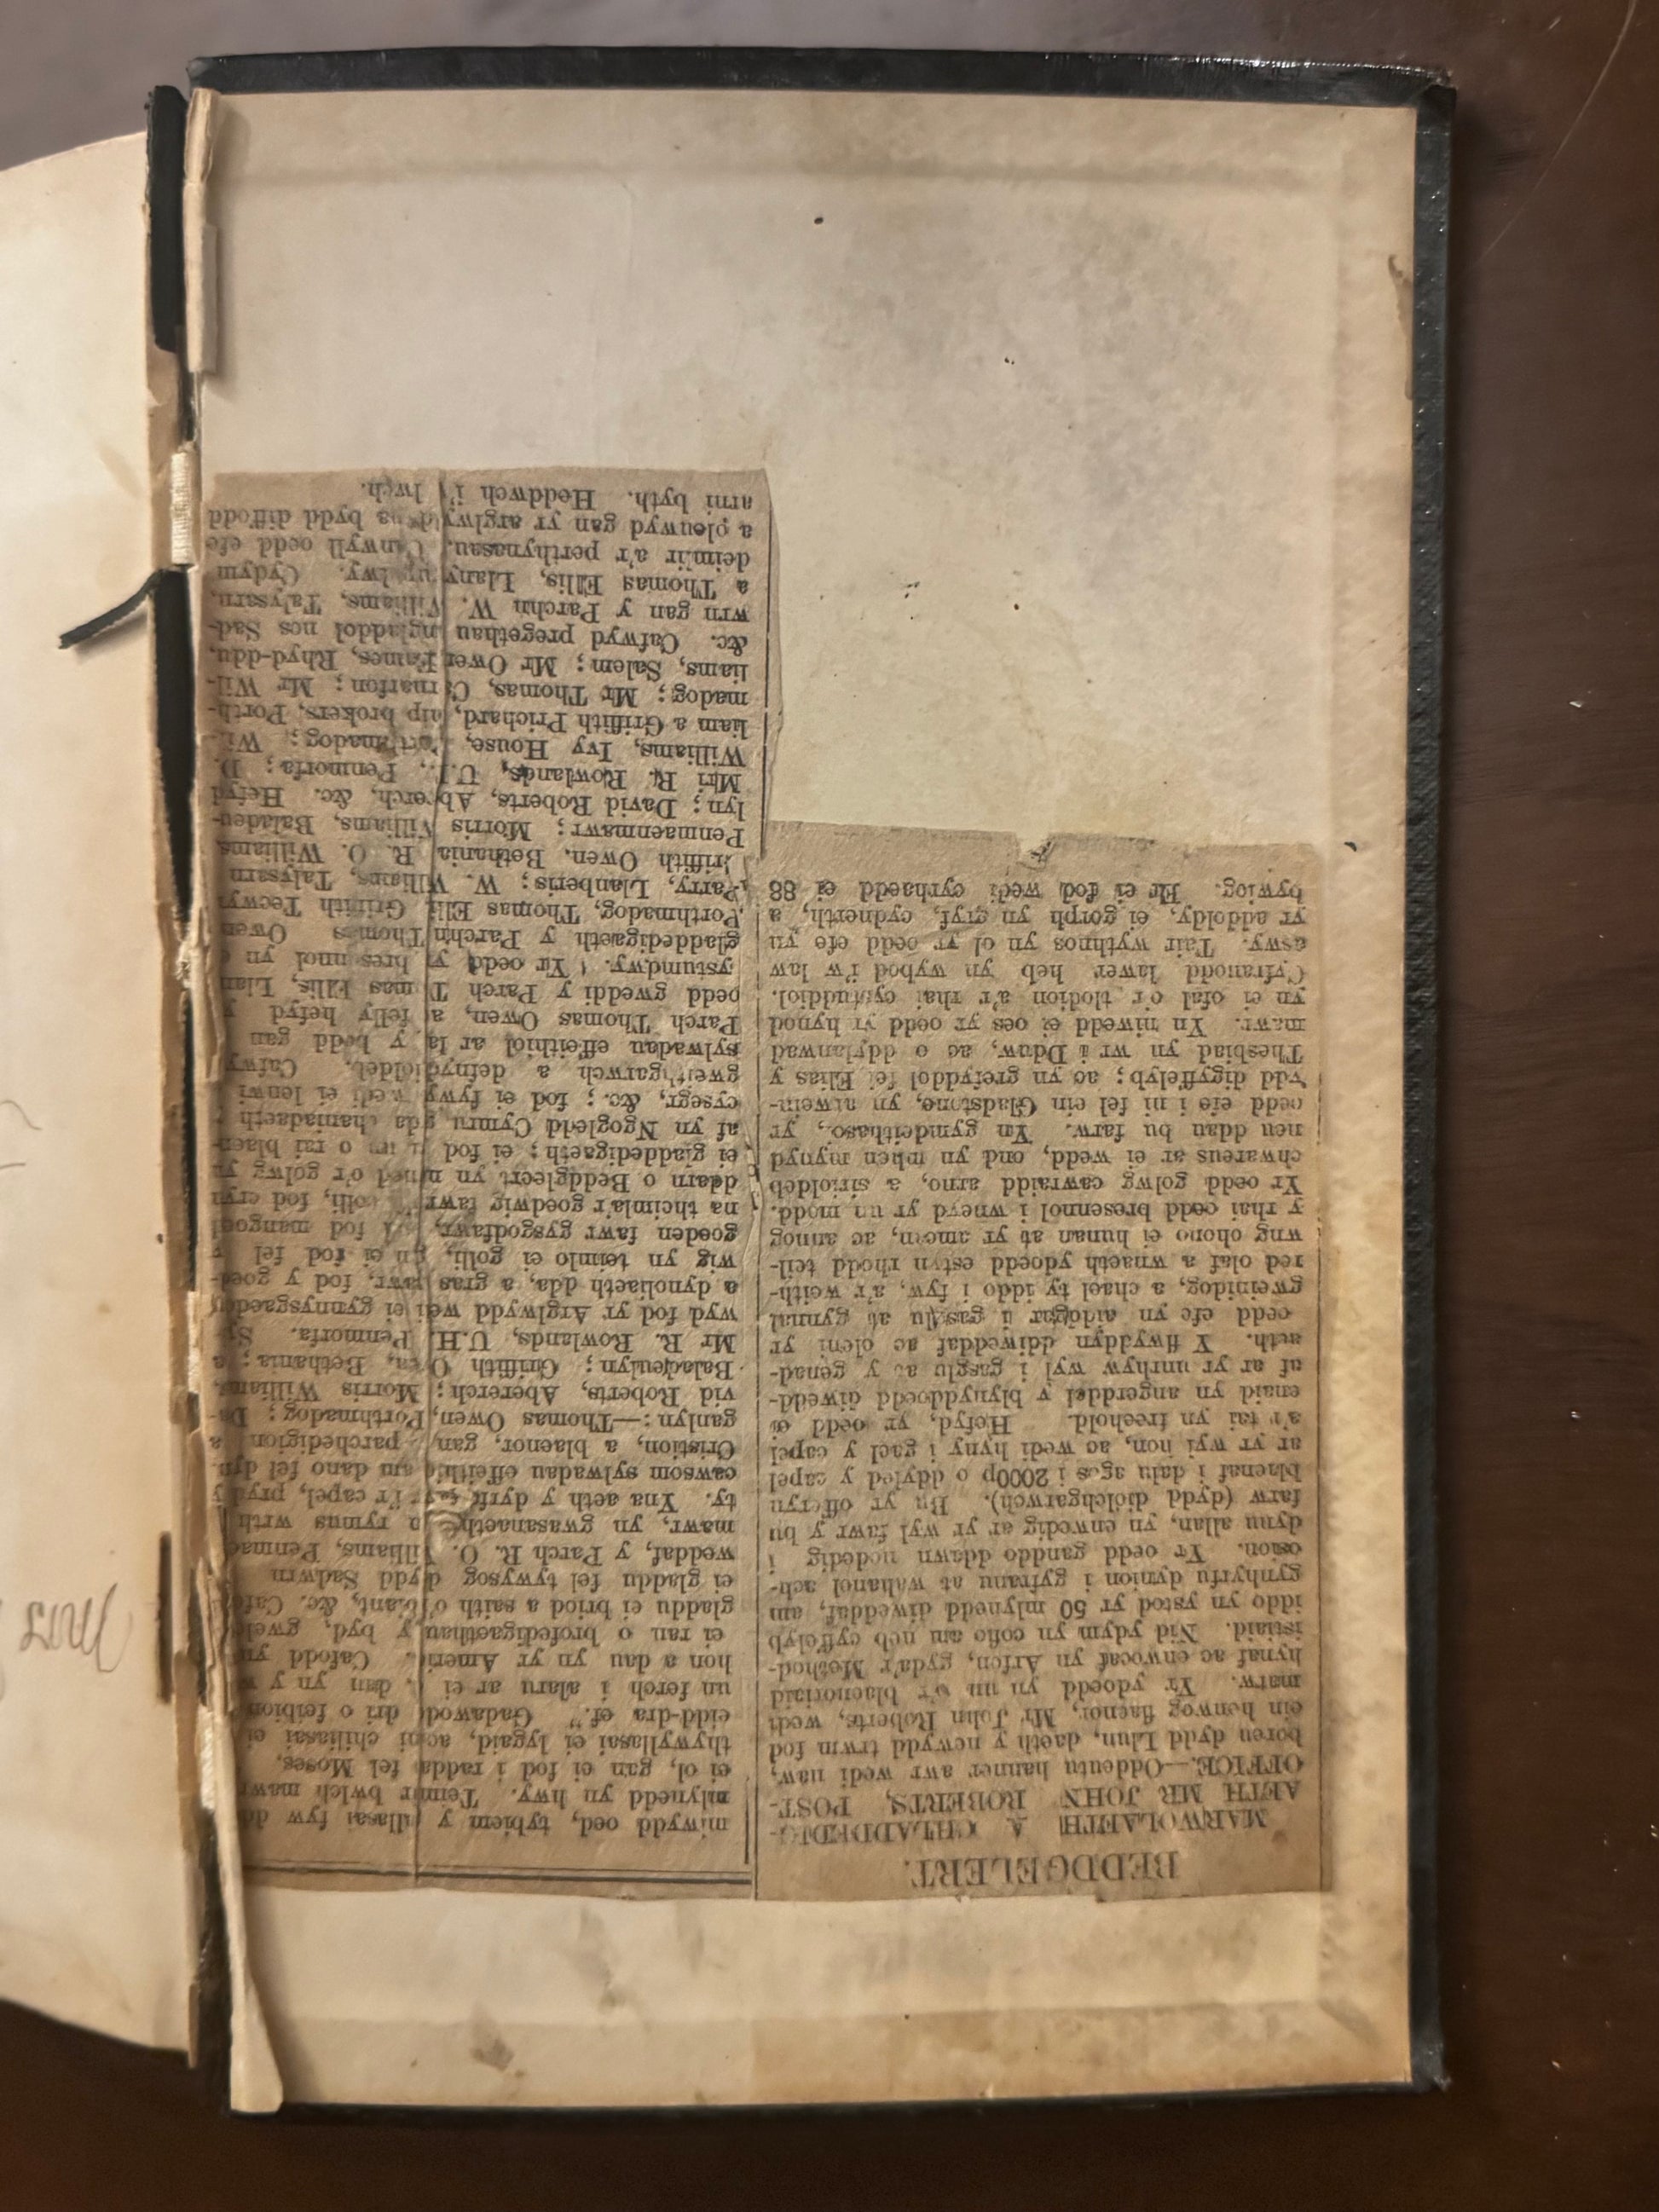 BEDDGELERT.
MARWOLAETH A CHLADDEDIG-
AETH MR JOHN ROBERTS, POST-
OFFICE.—Oddeutu hanner awr wedi naw,
boreu dydd Llun, daeth y newydd trwm fod
ein henwog flaenor, Mr John Roberts, wedi
marw. Yr ydoedd yn un o'r blaenoriaid
hynaf ac enwocaf yn Arfon, gyda'r Method-
istiaid. Nid ydym yn cofio am neb cyffelyb
iddo yn ystod yr 50 mlynedd diweddaf, am
gynhyrfu dynion i gyfranu at wahanol ach-
osion. Yr oedd ganddo ddawn nodedig i
dynu allan, yn enwedig ar yr wyl fawr y bu
farw (dydd diolchgarwch). Bu yr offeryn
blaenaf i dalu agos i 2000p o ddyled y capel
ar yr wyl hon, ac wedi hyny i gael y capel
a'r tai yn freehold. Hefyd, yr oedd ei
enaid yn angerddol y blynyddoedd diwedd-
af ar yr unrhyw wyl i gasglu at y genad-
aeth. Y flwyddyn ddiweddaf ac eleni yr
oedd efe yn aiddgar i gasglu at gynnal
gweinidog, a chael ty iddo i fyw, a'r weith-
red olaf a wnaeth ydoedd estyn rhodd teil-
wng ohono ei hunan at yr amcan, ac annog
y rhai oedd bresennol i wneyd yr un modd.
Yr oedd golwg cawraidd arno, a sirioldeb
chwareus ar ei wedd, ond yn mhen mynyd
neu ddau bu farw. Yn gymdeithasol, yr
oedd efe i ni fel ein Gladstone, yn arwein-
ydd digyffelyb; ac yn grefyddol fel Elias y
Thesbiad yn wr i Dduw, ac o ddylanwad
mawr. Yn niwedd ei oes yr oedd yr hynod
yn ei ofal o'r tlodion a'r rhai cystuddiol.
Cyfranodd lawer heb yn wybod i'w law
aswy. Tair wythnos yn ol yr oedd efe yn
yr addoldy, ei gorph yn gryf, cydnerth, a
bywiog. Er ei fod wedi cyrhaedd ei 88
mlwydd oed, tybiem y gallasai fyw
mlynedd yn hwy. Teimlir bwlch mawr
ei ol, gan ei fod i raddau fel Moses,
thywyllasai ei lygaid, ac ni chiliasai ei
eidd-dra ef." Gadawodd dri o feibion
un ferch i alaru ar ei
hon a dau yn yr America. Cafodd yn
ei ran o brofedigaethau y byd, gweled
gladdu ei briod a saith o'i blant, &c. Cafodd
ei gladdu fel tywysog dydd Sadwrn
weddaf, y Parch R. O. Williams, Penmaen-
mawr, yn gwasanaethu yn rymus wrth
ty. Yna aeth y dyrfa fawr i'r capel, pryd y
cawsom sylwadau effeithiol am dano fel dyn,
Cristion, a blaenor, gan y parchedigion a
ganlyn:—Thomas Owen, Porthmadog; Da-
vid Roberts, Abererch; Morris Williams,
Baladeulyn; Griffith Owen, Bethania; a
Mr R. Rowlands, U.H. Penmorfa. Sy-
wyd fod yr Arglwydd wedi ei gynnysgaeddu
a dynoliaeth dda, a gras mawr, fod y goed-
wig yn teimlo ei golli, gan ei fod fel y
goeden fawr gysgodfawr,
ddarn o Beddgelert yn myned o'r golwg yn
ei gladdedigaeth; ei fod yn un o rai blaen-
af yn Ngogledd Cymru gyda chaniadaeth y
cysegr, &c.; fod ei fywyd wedi ei lenwi
gweithgarwch a defnyddioldeb. Cafwyd
sylwadau effeithiol ar lan y bedd gan
Parch Thomas Owen, a felly hefyd y
oedd gweddi y Parch Thomas Ellis, Llan-
ystumdwy. Yr oedd yn bresennol yn y
gladdedigaeth y Parchn Thomas Owen
Porthmadog, Thomas Ellis, Griffith Tecwyn
Parry, Llanberis; W. Williams, Talysarn
Griffith Owen, Bethania, R. O. Williams
Penmaenmawr; Morris Williams, Baladeu-
lyn; David Roberts, Abererch, &c. Hefyd
Mri R. Rowlands, U.H., Penmorfa; D.
Williams, Ivy House, Porthmadog; Wil-
liam a Griffith Prichard, ship brokers, Porth-
madog; Mr Thomas, Carnarfon; Mr Wil-
liams, Salem; Mr Owen Eames, Rhyd-ddu,
&c. Cafwyd pregethau angladdol nos Sad-
wrn gan y Parchn W. Williams, Talysarn,
a Thomas Ellis, Llanystumdwy. Cydym-
deimlir a'r perthynasau. Canwyll oedd efe
a oleuwyd gan yr arglwydd na bydd diffodd
arni byth. Heddwch i'w lwch.